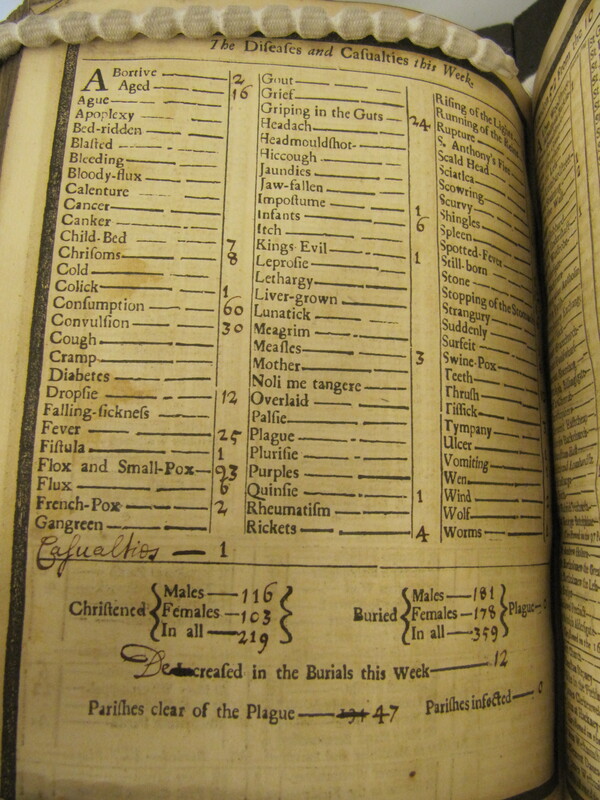 The Diseaſes and Caſualties this Week.
ABortive 2
Aged 16
Ague
Apoplexy
Bed-ridden
Blaſted
Bleeding
Bloody-flux
Calenture
Cancer
Canker
Child-Bed 7
Chriſoms 8
Cold
Colick 1
Conſumption 60
Convulſion 30
Cough
Cramp
Diabetes
Dropſie 12
Falling-ſickneſs
Fever 25
Fiſtula 1
Flox and Small-Pox 93
Flux 6
French-Pox 2
Gangreen
Caſualties — 1
Gout
Grief
Griping in the Guts 24
Headach
Headmouldſhot
Hiccough
Jaundies
Jaw-fallen
Impoſtume 1
Infants 6
Itch
Kings Evil 1
Leproſie
Lethargy
Liver-grown
Lunatick
Meagrim
Meaſles 3
Mother
Noli me tangere
Overlaid
Palſie
Plague
Pluriſie
Purples
Quinſie 1
Rheumatiſm
Rickets 4
Riſing of the Lights
Running of the
Rupture
S. Anthony's Fire
Scald Head
Sciatica
Scowring
Scurvy
Shingles
Spleen
Spotted-Fever
Still-born
Stone
Stopping of the
Strangury
Suddenly
Surfeit
Swine-Pox
Teeth
Thruſh
Tiſſick
Tympany
Ulcer
Vomiting
Wen
Wind
Wolf
Worms
Chriſtened
Males — 116
Females — 103
In all — 219
Buried
Males — 181
Females — 178
In all — 359
Plague
Decreaſed in the Burials this Week 12
Pariſhes clear of the Plague — 134 47 Pariſhes infected — 0